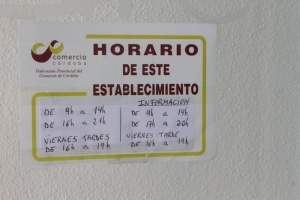 comercio
córdoba
Federación Provincial del
Comercio de Córdoba
HORARIO
DE ESTE
ESTABLECIMIENTO
DE 9h a 14h
DE 16h a 21h
VIERNES TARDES
DE 16h a 19h
INFORMACIÓN
DE 9h a 14h
DE 17h a 20h
VIERNES TARDE
DE 16h a 19h